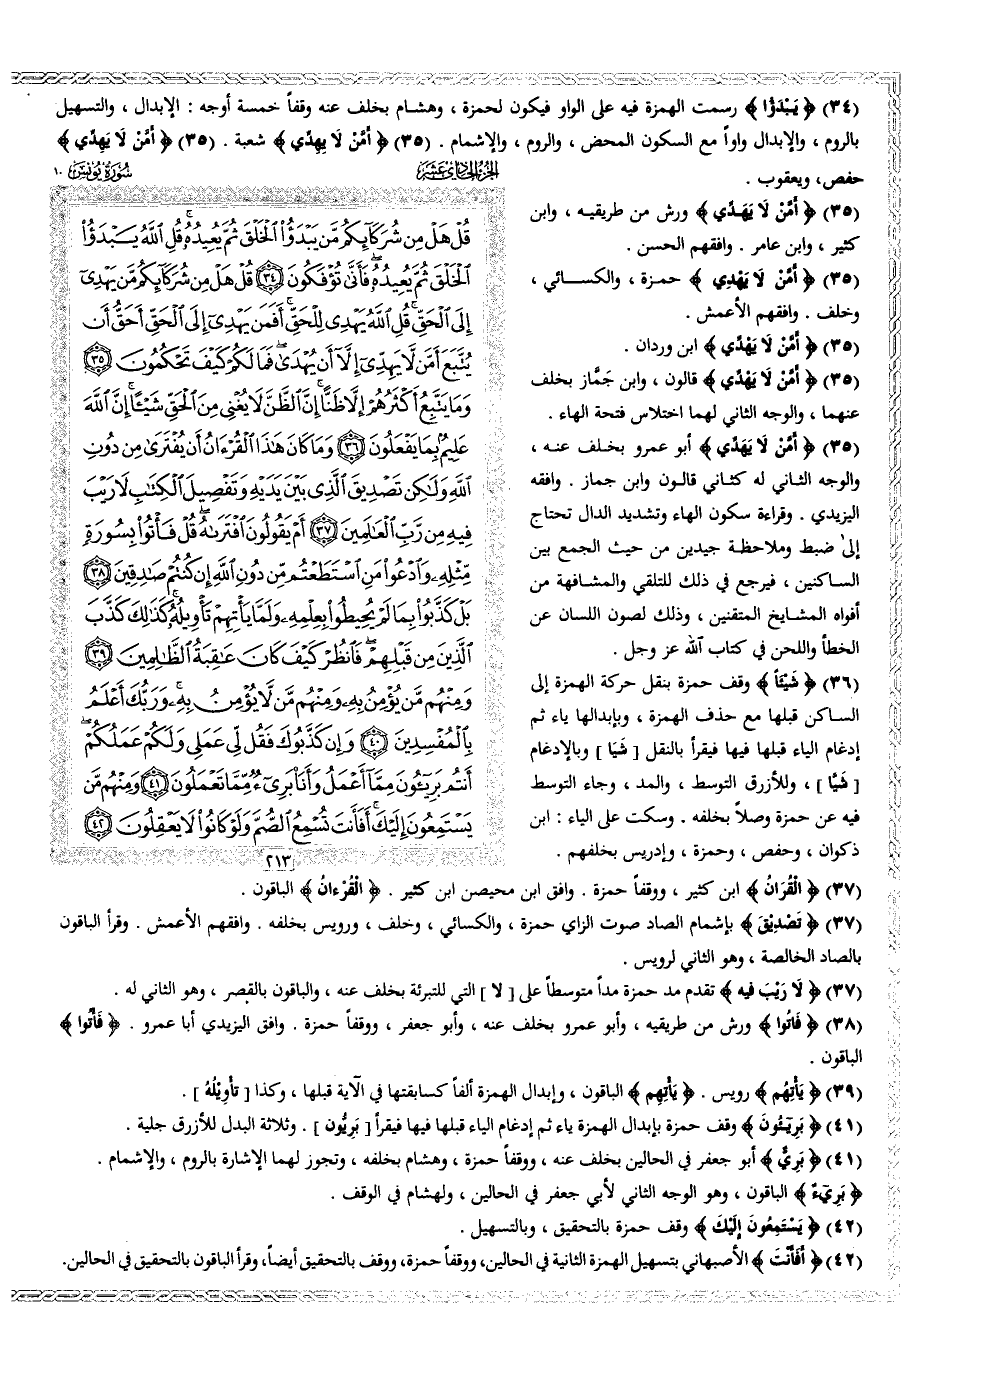 (٣٤) ﴿ يَبْدَؤُا ﴾ رسمت الهمزة فيه على الواو فيكون لحمزة ، وهشام بخلف عنه وقفاً خمسة أوجه : الإبدال ، والتسهيل
بالروم ، والإبدال واواً مع السكون المحض ، والروم ، والإشمام . (٣٥) ﴿ أَمَّنْ لَا يِهِدِّي ﴾ شعبة . (٣٥) ﴿ أَمَّنْ لَا يَهِدِّي ﴾
حفص، ويعقوب .
الجزء الحادي عشر
سورة يونس ١٠
(٣٥) ﴿ أَمَّنْ لَا يَهَدِّي ﴾ ورش من طريقيه ، وابن
كثير ، وابن عامر . وافقهم الحسن .
(٣٥) ﴿ أَمَّنْ لَا يَهْدِي ﴾ حمزة ، والكسائي ،
وخلف . وافقهم الأعمش .
(٣٥) ﴿ أَمَّنْ لَا يَهْدِّي ﴾ ابن وردان .
(٣٥) ﴿ أَمَّنْ لَا يَهْدِّي ﴾ قالون ، وابن جَمَّاز بخلف
عنهما ، والوجه الثاني لهما اختلاس فتحة الهاء .
(٣٥) ﴿ أَمَّنْ لَا يَهَدِّي ﴾ أبو عمرو بخلف عنه ،
والوجه الثاني له كثاني قالون وابن جماز . وافقه
اليزيدي . وقراءة سكون الهاء وتشديد الدال تحتاج
إلى ضبط وملاحظة جيدين من حيث الجمع بين
الساكنين ، فيرجع في ذلك للتلقي والمشافهة من
أفواه المشايخ المتقنين ، وذلك لصون اللسان عن
الخطأ واللحن في كتاب الله عز وجل .
(٣٦) ﴿ شَيْئاً ﴾ وقف حمزة بنقل حركة الهمزة إلى
الساكن قبلها مع حذف الهمزة ، وبإبدالها ياء ثم
إدغام الياء قبلها فيها فيقرأ بالنقل [ شَيَا ] وبالإدغام
[ شَيًّا ] ، وللأزرق التوسط ، والمد ، وجاء التوسط
فيه عن حمزة وصلاً بخلفه . وسكت على الياء : ابن
ذكوان ، وحفص ، وحمزة ، وإدريس بخلفهم .
قُلْ هَلْ مِن شُرَكَآئِكُم مَّن يَبْدَؤُا۟ ٱلْخَلْقَ ثُمَّ يُعِيدُهُۥ ۚ قُلِ ٱللَّهُ يَبْدَؤُا۟
ٱلْخَلْقَ ثُمَّ يُعِيدُهُۥ ۖ فَأَنَّىٰ تُؤْفَكُونَ ٣٤ قُلْ هَلْ مِن شُرَكَآئِكُم مَّن يَهْدِىٓ
إِلَى ٱلْحَقِّ ۚ قُلِ ٱللَّهُ يَهْدِى لِلْحَقِّ ۗ أَفَمَن يَهْدِىٓ إِلَى ٱلْحَقِّ أَحَقُّ أَن
يُتَّبَعَ أَمَّن لَّا يَهِدِّىٓ إِلَّآ أَن يُهْدَىٰ ۖ فَمَا لَكُمْ كَيْفَ تَحْكُمُونَ ٣٥
وَمَا يَتَّبِعُ أَكْثَرُهُمْ إِلَّا ظَنًّا ۚ إِنَّ ٱلظَّنَّ لَا يُغْنِى مِنَ ٱلْحَقِّ شَيْـًٔا ۚ إِنَّ ٱللَّهَ
عَلِيمٌۢ بِمَا يَفْعَلُونَ ٣٦ وَمَا كَانَ هَٰذَا ٱلْقُرْءَانُ أَن يُفْتَرَىٰ مِن دُونِ
ٱللَّهِ وَلَٰكِن تَصْدِيقَ ٱلَّذِى بَيْنَ يَدَيْهِ وَتَفْصِيلَ ٱلْكِتَٰبِ لَا رَيْبَ
فِيهِ مِن رَّبِّ ٱلْعَٰلَمِينَ ٣٧ أَمْ يَقُولُونَ ٱفْتَرَىٰهُ ۖ قُلْ فَأْتُوا۟ بِسُورَةٍ
مِّثْلِهِۦ وَٱدْعُوا۟ مَنِ ٱسْتَطَعْتُم مِّن دُونِ ٱللَّهِ إِن كُنتُمْ صَٰدِقِينَ ٣٨
بَلْ كَذَّبُوا۟ بِمَا لَمْ يُحِيطُوا۟ بِعِلْمِهِۦ وَلَمَّا يَأْتِهِمْ تَأْوِيلُهُۥ ۚ كَذَٰلِكَ كَذَّبَ
ٱلَّذِينَ مِن قَبْلِهِمْ ۖ فَٱنظُرْ كَيْفَ كَانَ عَٰقِبَةُ ٱلظَّٰلِمِينَ ٣٩
وَمِنْهُم مَّن يُؤْمِنُ بِهِۦ وَمِنْهُم مَّن لَّا يُؤْمِنُ بِهِۦ ۚ وَرَبُّكَ أَعْلَمُ
بِٱلْمُفْسِدِينَ ٤٠ وَإِن كَذَّبُوكَ فَقُل لِّى عَمَلِى وَلَكُمْ عَمَلُكُمْ ۖ
أَنتُم بَرِيٓـُٔونَ مِمَّآ أَعْمَلُ وَأَنَا۠ بَرِىٓءٌ مِّمَّا تَعْمَلُونَ ٤١ وَمِنْهُم مَّن
يَسْتَمِعُونَ إِلَيْكَ ۚ أَفَأَنتَ تُسْمِعُ ٱلصُّمَّ وَلَوْ كَانُوا۟ لَا يَعْقِلُونَ ٤٢
٢١٣
(٣٧) ﴿ الْقُرَانُ ﴾ ابن كثير ، ووقفاً حمزة . وافق ابن محيصن ابن كثير . ﴿ الْقُرْءَانُ ﴾ الباقون .
(٣٧) ﴿ تَصْدِيْقَ ﴾ بإشمام الصاد صوت الزاي حمزة ، والكسائي ، وخلف ، ورويس بخلفه . وافقهم الأعمش . وقرأ الباقون
بالصاد الخالصة ، وهو الثاني لرويس .
(٣٧) ﴿ لَا رَيْبَ فيه ﴾ تقدم مد حمزة مداً متوسطاً على [ لا ] التي للتبرئة بخلف عنه ، والباقون بالقصر ، وهو الثاني له .
(٣٨) ﴿ فَاتُوا ﴾ ورش من طريقيه ، وأبو عمرو بخلف عنه ، وأبو جعفر ، ووقفاً حمزة . وافق اليزيدي أبا عمرو . ﴿ فَأْتُوا ﴾
الباقون .
(٣٩) ﴿ يَأْتِهُم ﴾ رويس . ﴿ يَأْتِهِم ﴾ الباقون ، وإبدال الهمزة ألفاً كسابقتها في الآية قبلها ، وكذا [ تأوِيْلُهُ ] .
(٤١) ﴿ بَرِيٓـُٔونَ ﴾ وقف حمزة بإبدال الهمزة ياء ثم إدغام الياء قبلها فيها فيقرأ [ بَرِيُّون ] . وثلاثة البدل للأزرق جلية .
(٤١) ﴿ بَرِيٌّ ﴾ أبو جعفر في الحالين بخلف عنه ، ووقفاً حمزة ، وهشام بخلفه ، وتجوز لهما الإشارة بالروم ، والإشمام .
﴿ بَرِيٓءٌ ﴾ الباقون ، وهو الوجه الثاني لأبي جعفر في الحالين ، ولهشام في الوقف .
(٤٢) ﴿ يَسْتَمِعُونَ إِلَيْكَ ﴾ وقف حمزة بالتحقيق ، وبالتسهيل .
(٤٢) ﴿ أَفَأَنْتَ ﴾ الأصبهاني بتسهيل الهمزة الثانية في الحالين، ووقفاً حمزة، ووقف بالتحقيق أيضاً، وقرأ الباقون بالتحقيق في الحالين.